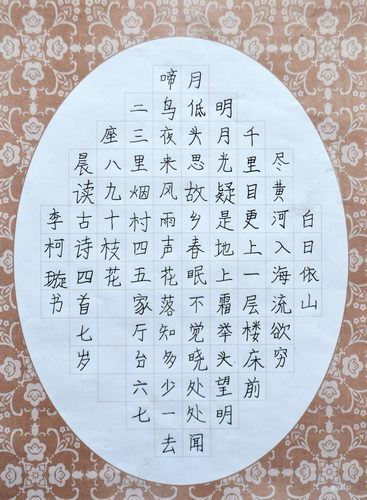 白日依山
尽黄河入海流欲穷
千里目更上一层楼床前
明月光疑是地上霜举头望明
月低头思故乡春眠不觉晓处处闻
啼鸟夜来风雨声花落知多少一去
二三里烟村四五家厅台六七
座八九十枝花
晨读古诗四首七岁
李柯璇书